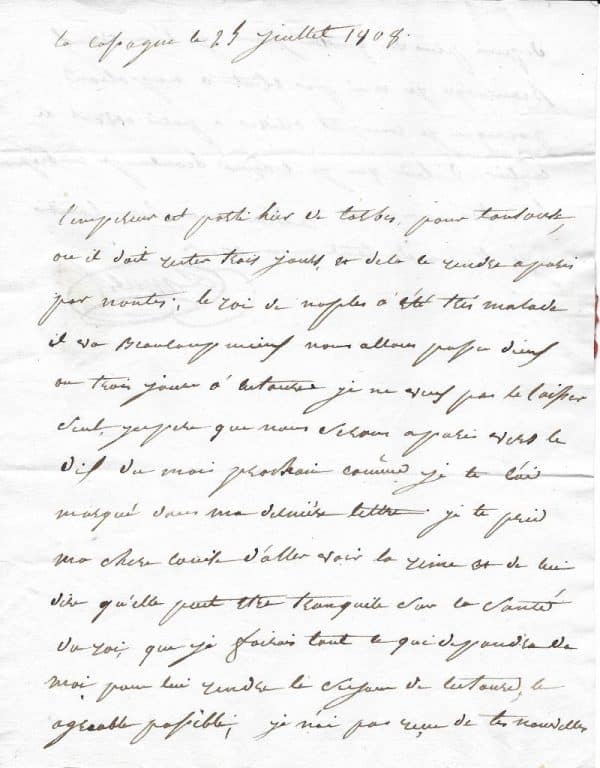 la espagne le 24 juillet 1808.
l'empereur est parti hier de tarbes, pour toulouse,
ou il doit rester trois jours, et dela se rendre a paris
par nantes; le roi de naples à été très malade
il va Beaucoup mieux nous allons passer deux
ou trois jours a lectoure je ne veux pas le laisser
seul, jespere que nous serons a paris vers le
dix du mois prochain comme je te l'ai
marqué dans ma dernière lettre. je te prie
ma chere louise d'aller voir la reine et de lui
dire qu'elle peut etre tranquile sur la santé
du roi, que je fairai tout ce qui dependra de
moi pour lui rendre le sejour de lectoure, le
agreable possible, je n'ai pas reçue de tes nouvelles